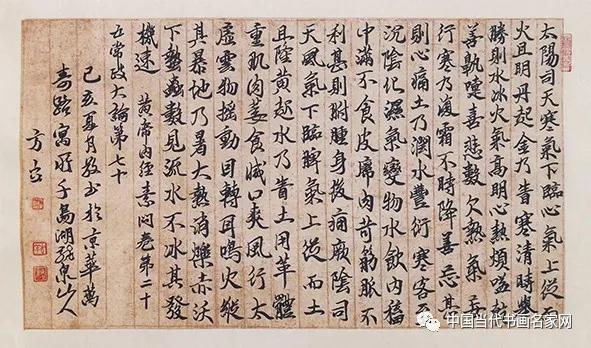 太陽司天寒氣下臨心氣上從而
火且明丹起金乃眚寒清時舉
勝則水冰火氣高明心熱煩嗌乾
善鼽嚏喜悲數欠熱氣妄
行寒乃復霜不時降善忘甚
則心痛土乃潤水豐衍寒客至
沉陰化濕氣變物水飲內稸
中滿不食皮肉苛筋脈不
利甚則胕腫身後癰厥陰司
天風氣下臨脾氣上從而土
且隆黃起水乃眚土用革體
重肌肉萎食減口爽風行太
虛雲物搖動目轉耳鳴火縱
其暴地乃暑大熱消爍赤沃
下蟄蟲數見流水不冰其發
機速 黃帝內經素問卷第二十
五常政大論第七十
己亥夏月敬書於京華萬
壽路寓所千島湖泉山人
方
中国当代书画名家网